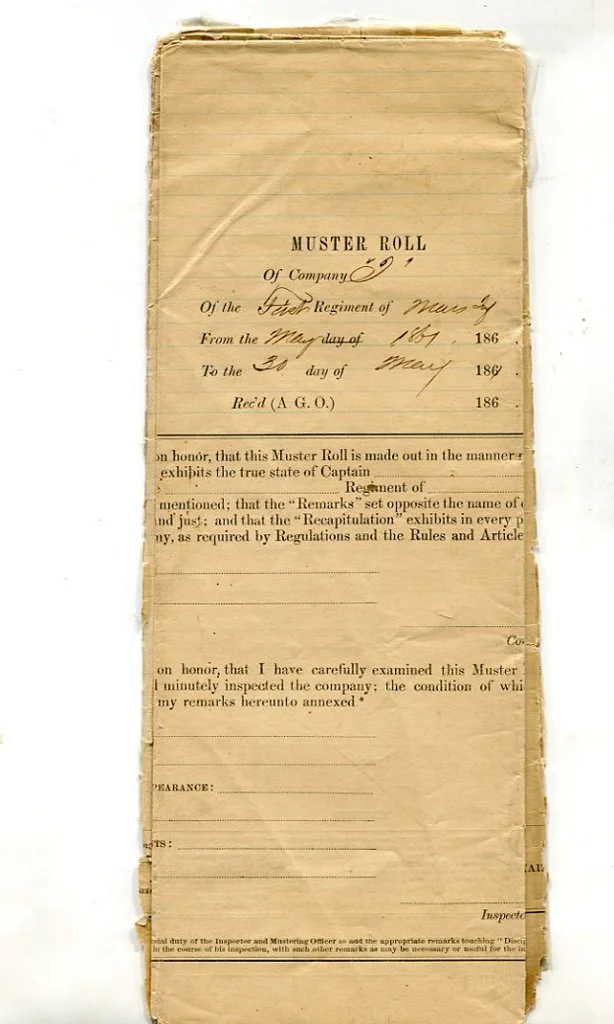 MUSTER ROLL
Of Company
Of the First Regiment of
From the May day of 1861. 186 .
To the 30 day of May 186 .
Rec'd (A G. O.) 186 .
on honor, that this Muster Roll is made out in the manner
exhibits the true state of Captain
Regiment of
mentioned; that the "Remarks" set opposite the name of
and just; and that the "Recapitulation" exhibits in every p
ny, as required by Regulations and the Rules and Article
Co
on honor, that I have carefully examined this Muster
l minutely inspected the company; the condition of whi
my remarks hereunto annexed.*
PEARANCE:
TS:
AR
Inspecto
cial duty of the Inspector and Mustering Officer to add the appropriate remarks touching "Disci
in the course of his inspection, with such other remarks as may be necessary or useful for the in